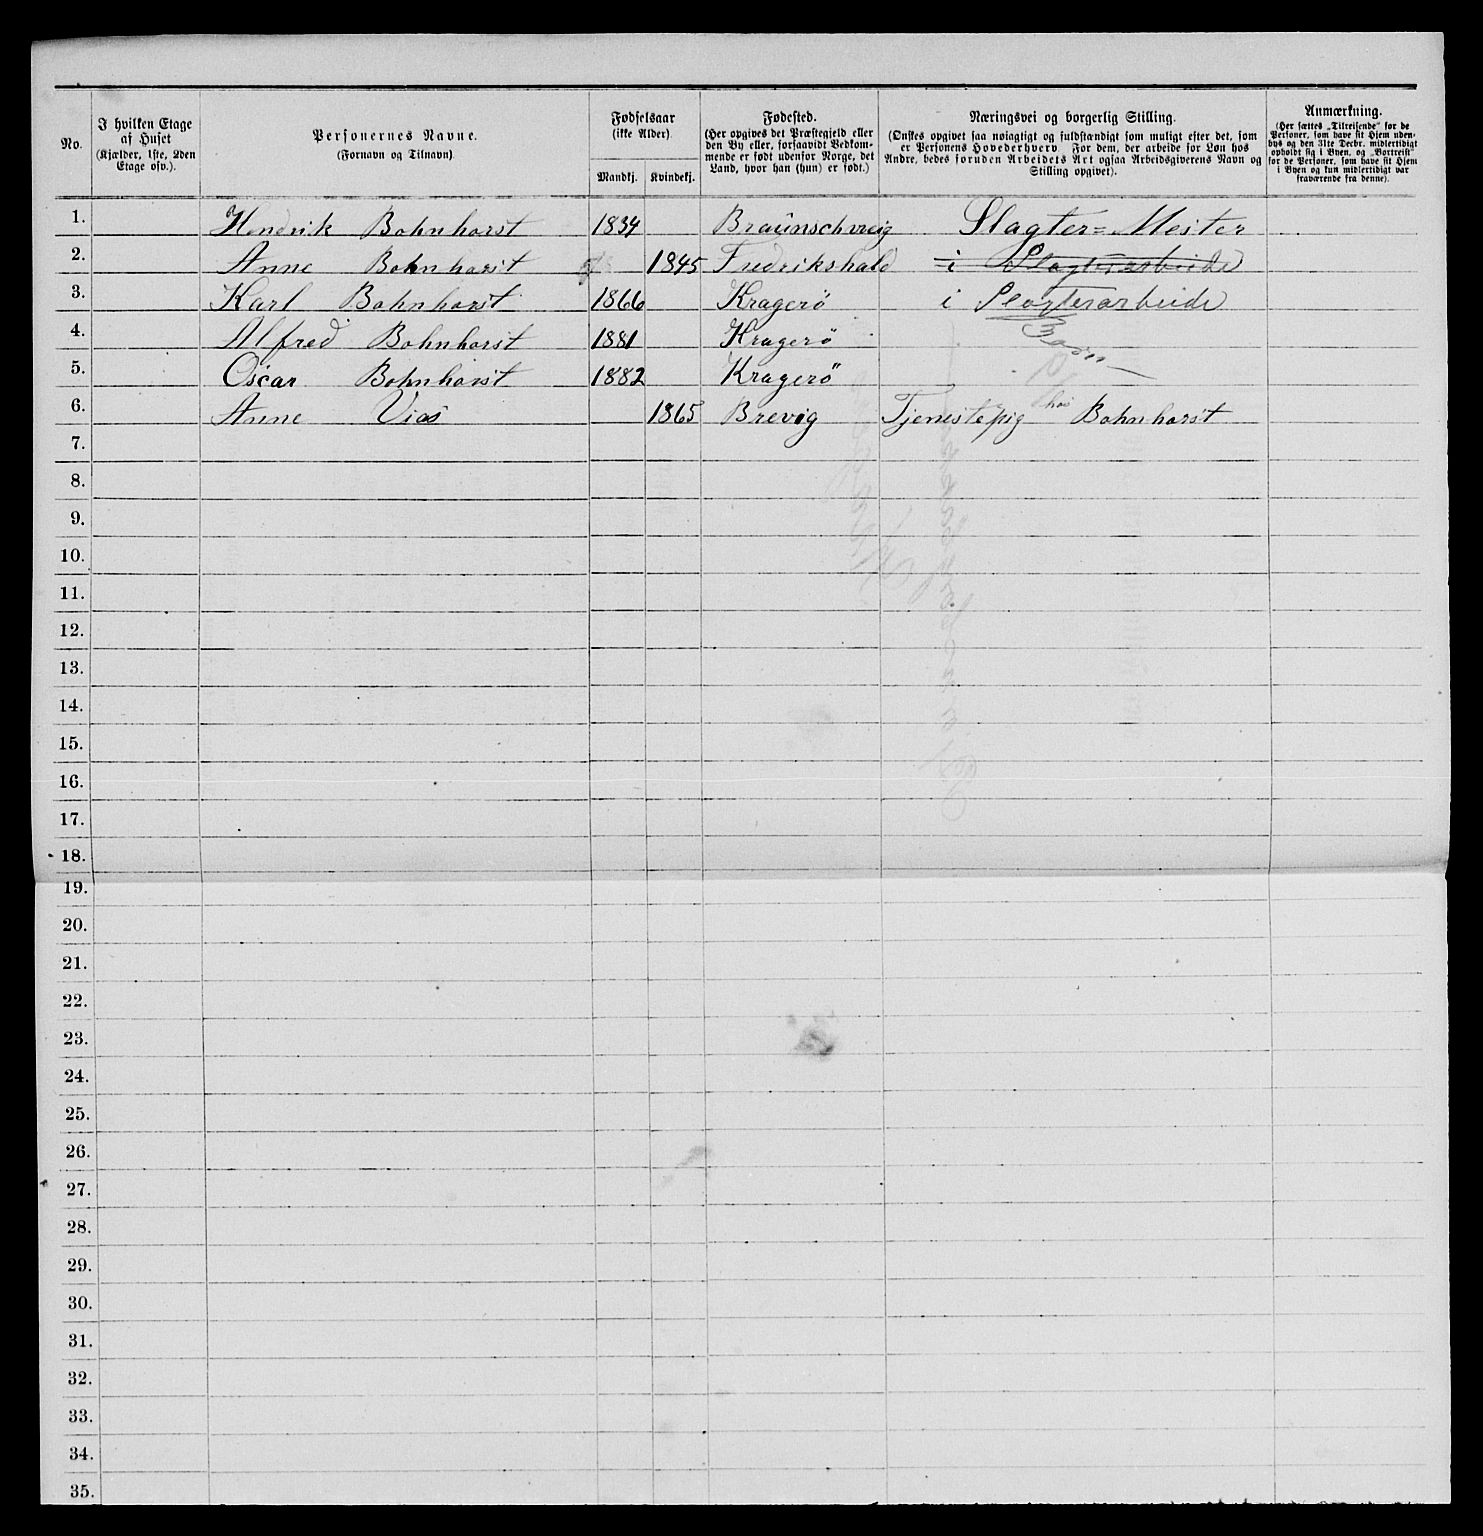 No.
I hvilken Etage af Huset (Kjælder, 1ste, 2den Etage osv.).
Personernes Navne. (Fornavn og Tilnavn)
Fødselsaar (ikke Alder)
Mandkj. Kvindekj.
Fødested. (Her opgives det Præstegjeld eller den By eller, forsaavidt Vedkommende er født udenfor Norge, det Land, hvor han (hun) er født.)
Næringsvei og borgerlig Stilling. (Ønskes opgivet saa nøiagtigt og fuldstændigt som muligt efter det, som er Personens Hovederhverv. For dem, der arbeide for Løn hos Andre, bedes foruden Arbeidets Art ogsaa Arbeidsgiverens Navn og Stilling opgivet).
Anmærkning. (Her sættes „Tilreisende" for de Personer, som have sit Hjem udenbys og den 31te Decbr. midlertidigt opholdt sig i Byen, og „Bortreist" for de Personer, som have sit Hjem i Byen og kun midlertidigt var fraværende fra denne).
1. Hendrik Bohnhorst 1834 Braunschweig Slagter=Meister
2. Anne Bohnhorst 1845 Fredrikshald i Slagterarbeide
3. Karl Bohnhorst 1866 Kragerö i Slagterarbeide
4. Alfred Bohnhorst 1881 Kragerö
5. Oscar Bohnhorst 1882 Kragerö
6. Anne 1865 Brevig Tjenestepig hos Bohnhorst
7.
8.
9.
10.
11.
12.
13.
14.
15.
16.
17.
18.
19.
20.
21.
22.
23.
24.
25.
26.
27.
28.
29.
30.
31.
32.
33.
34.
35.